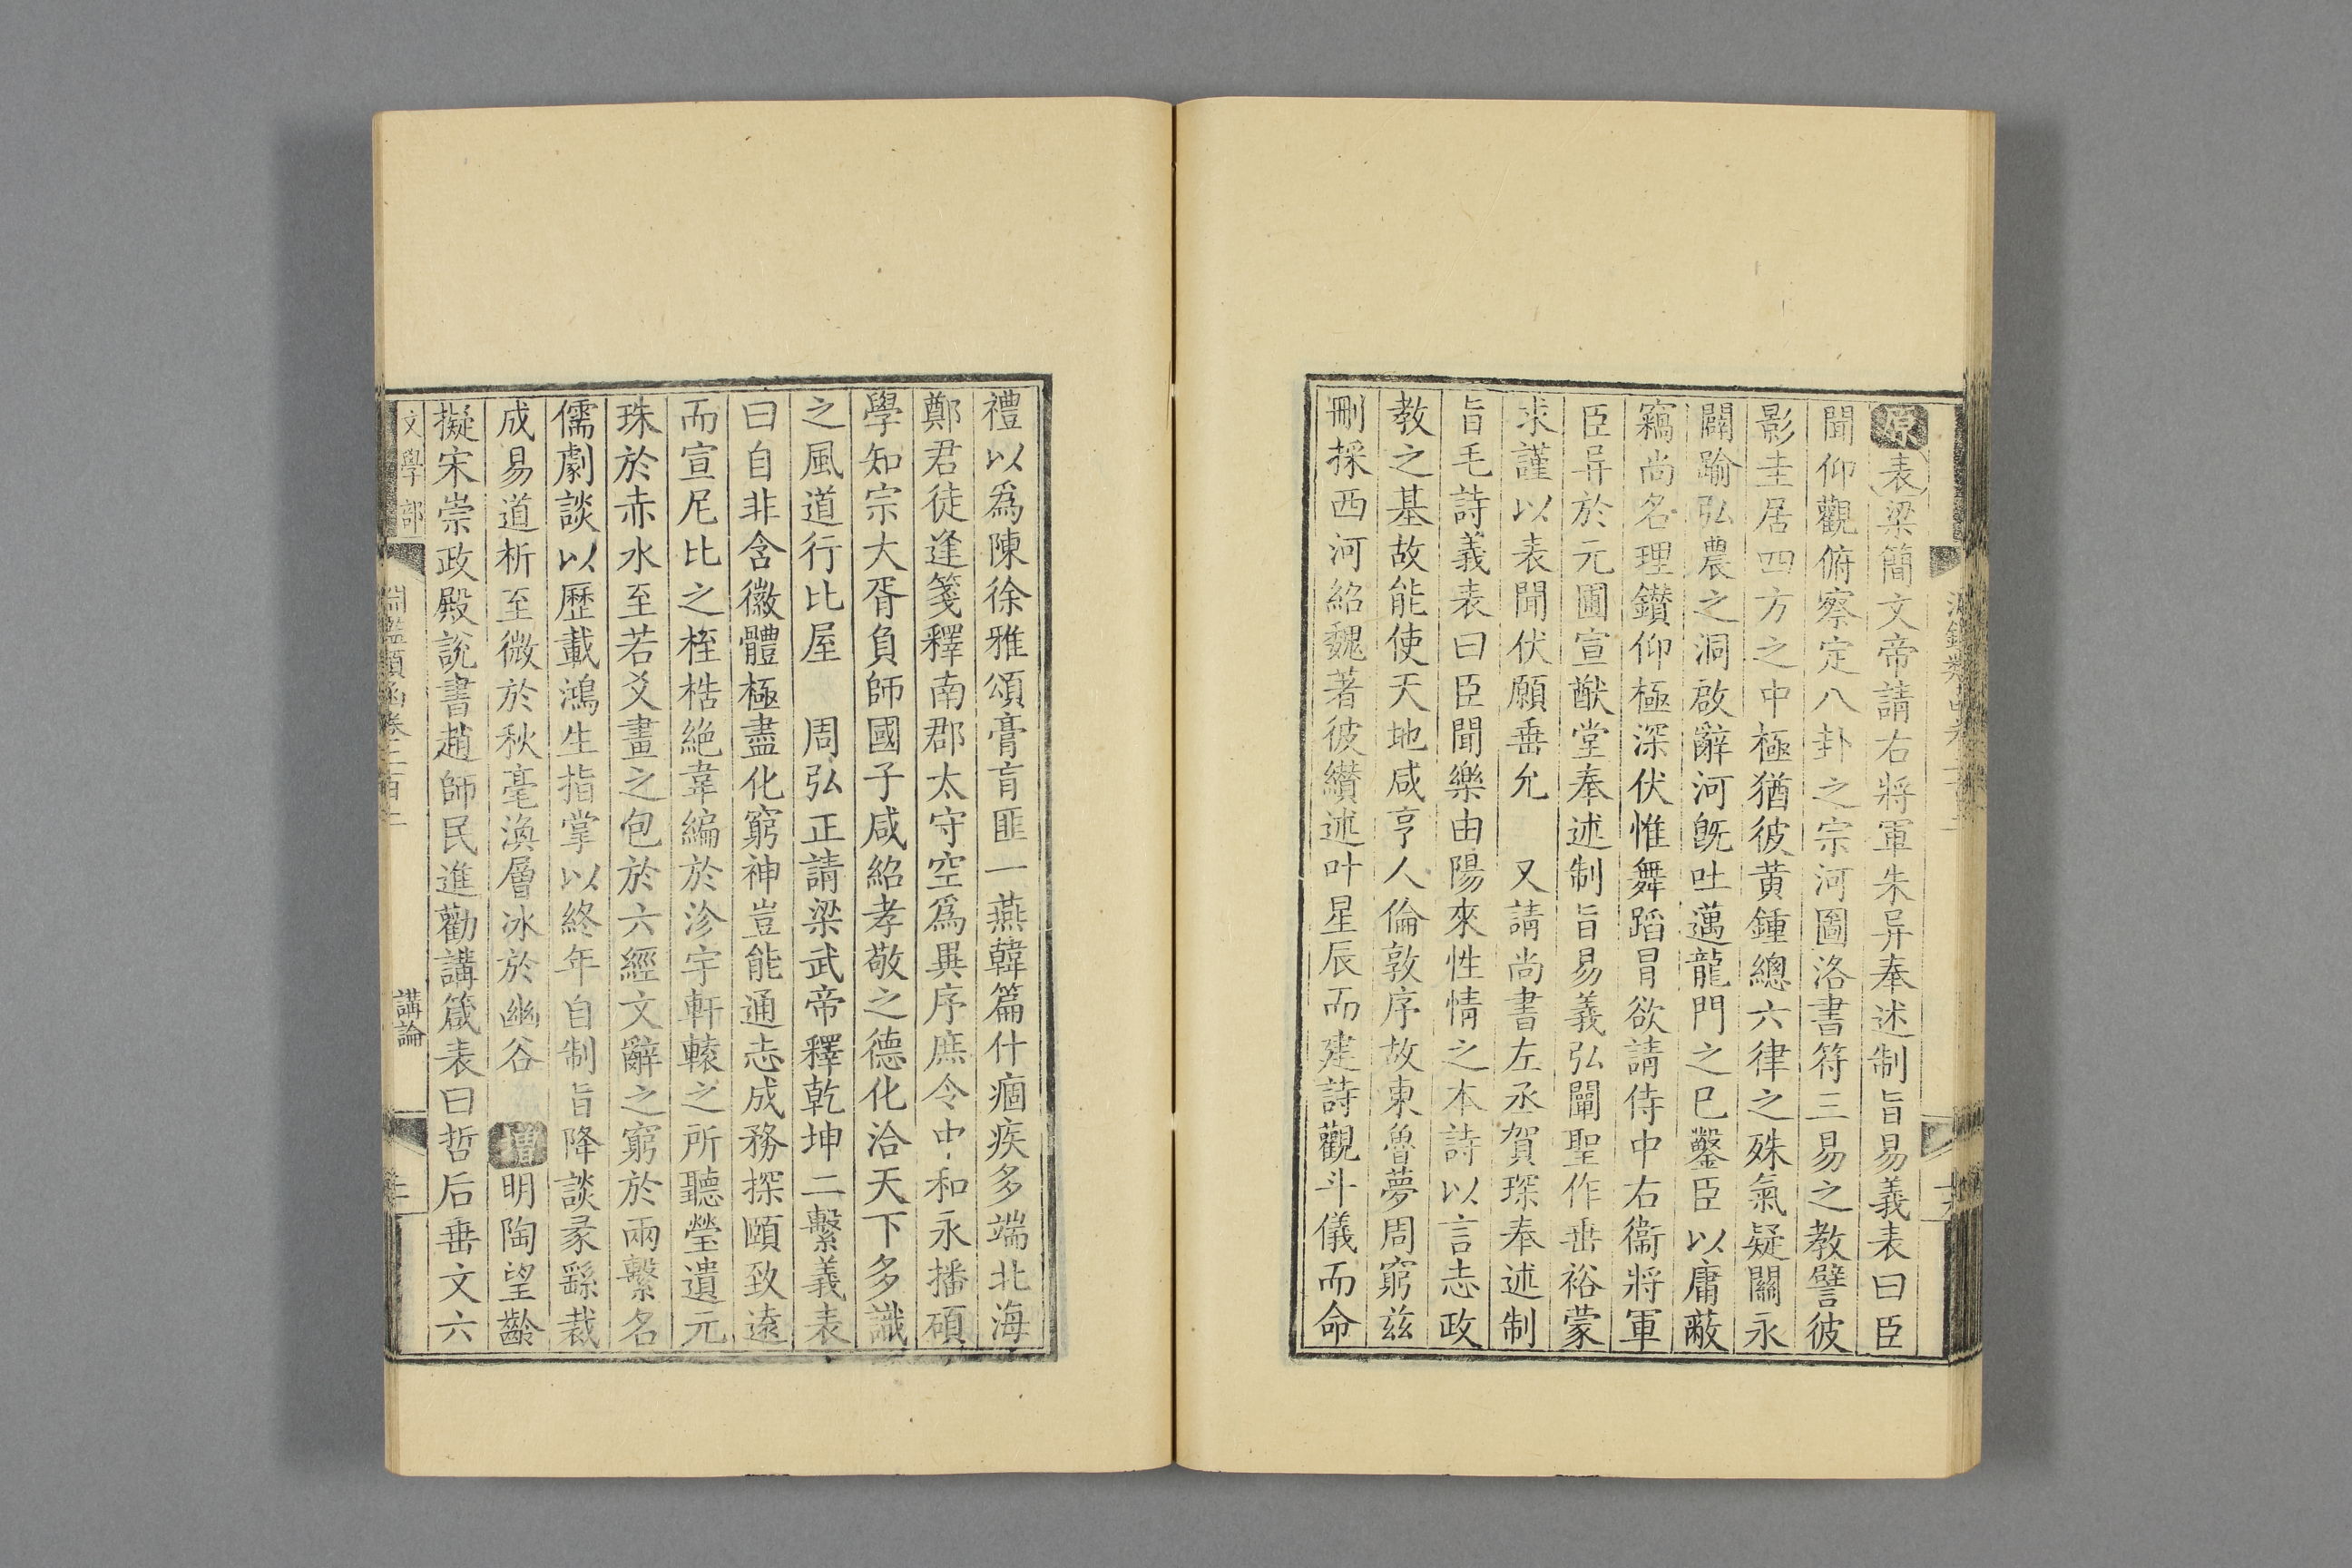 原表梁簡文帝請右將軍朱异奉述制旨易義表曰臣
聞仰觀俯察定八卦之宗河圖洛書符三易之教譬彼
影圭居四方之中極猶彼黃鍾總六律之殊氣疑關永
闢踰弘農之洞啟辭河旣吐邁龍門之巳鑿臣以庸蔽
竊尚名理鑽仰極深伏惟舞蹈冒欲請侍中右衞將軍
臣异於元圃宣猷堂奉述制旨易義弘闡聖作垂裕蒙
求謹以表聞伏願垂允　又請尚書左丞賀琛奉述制
旨毛詩義表曰臣聞樂由陽來性情之本詩以言志政
教之基故能使天地咸亨人倫敦序故東魯夢周窮兹
刪採西河紹魏著彼纘述叶星辰而建詩觀斗儀而命
禮以爲陳徐雅頌膏肓匪一燕韓篇什痼疾多端北海
鄭君徒逢箋釋南郡太守空爲異序庶令中和永播碩
學知宗大胥負師國子咸紹孝敬之德化洽天下多識
之風道行比屋　周弘正請梁武帝釋乾坤二繫義表
曰自非含徽體極盡化窮神豈能通志成務探頤致遠
而宣尼比之桎梏絕韋編於沴宇軒轅之所聽瑩遺元
珠於赤水至若爻畫之包於六經文辭之窮於兩繫名
儒劇談以歷載鴻生指掌以終年自制旨降談彖繇裁
成易道析至微於秋毫渙層冰於幽谷　增明陶望齡
擬宋崇政殿說書趙師民進勸講箴表曰哲后垂文六
文學部
淵鑑類函卷二百二
講論